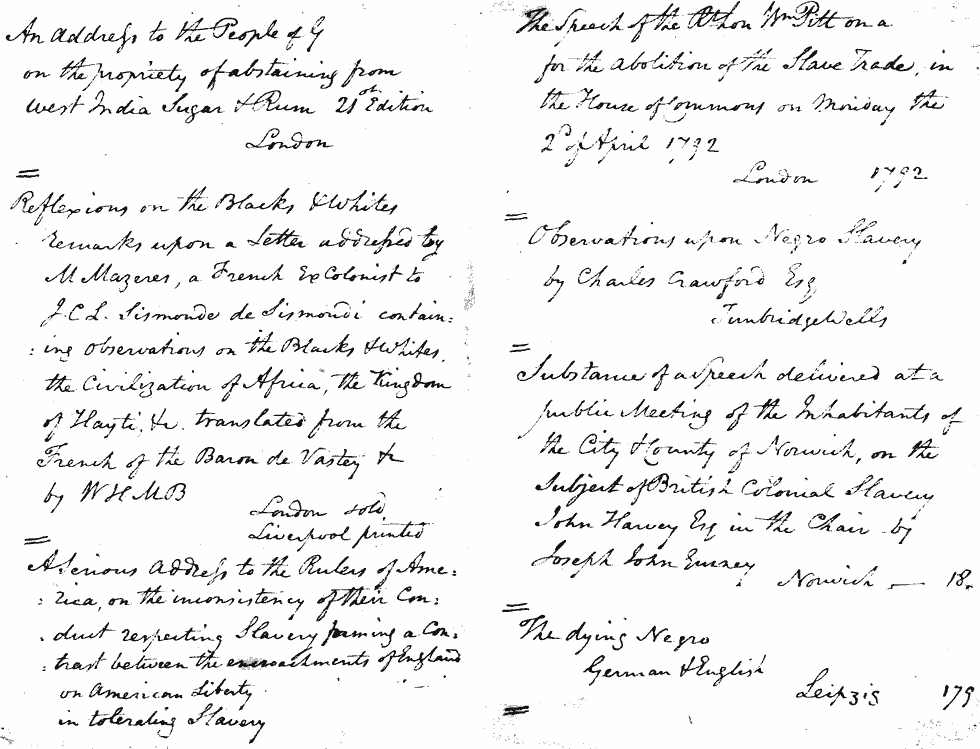 An Address to the People of G
on the propriety of abstaining from
West India Sugar & Rum 21st Edition
London
=
Reflexions on the Blacks & Whites
Remarks upon a Letter addressed by
M Mazeres, a French Ex Colonist to
J.C.L. Sismonde de Sismondi contain:
:ing observations on the Blacks & Whites,
the Civilization of Africa, the Kingdom
of Hayti, &c. translated from the
French of the Baron de Vastey &c
by WHMB
London sold,
Liverpool printed
=
A Serious Address to the Rulers of Ame:
:rica, on the inconsistency of their Con:
:duct respecting Slavery forming a Con:
:trast between the encroachments of England
on American Liberty
in tolerating Slavery
The Speech of the Rt hon Wm Pitt on a
for the abolition of the Slave Trade, in
the House of Commons on Monday the
2d of April 1792
London 1792
=
Observations upon Negro Slavery
by Charles Crawford Esq
Tunbridge Wells
=
Substance of a Speech delivered at a
public Meeting of the Inhabitants of
the City & County of Norwich, on the
Subject of British Colonial Slavery
John Harvey Esq in the Chair by
Joseph John Gurney
Norwich — 18
=
The dying Negro
German & English
Leipzig 179
=